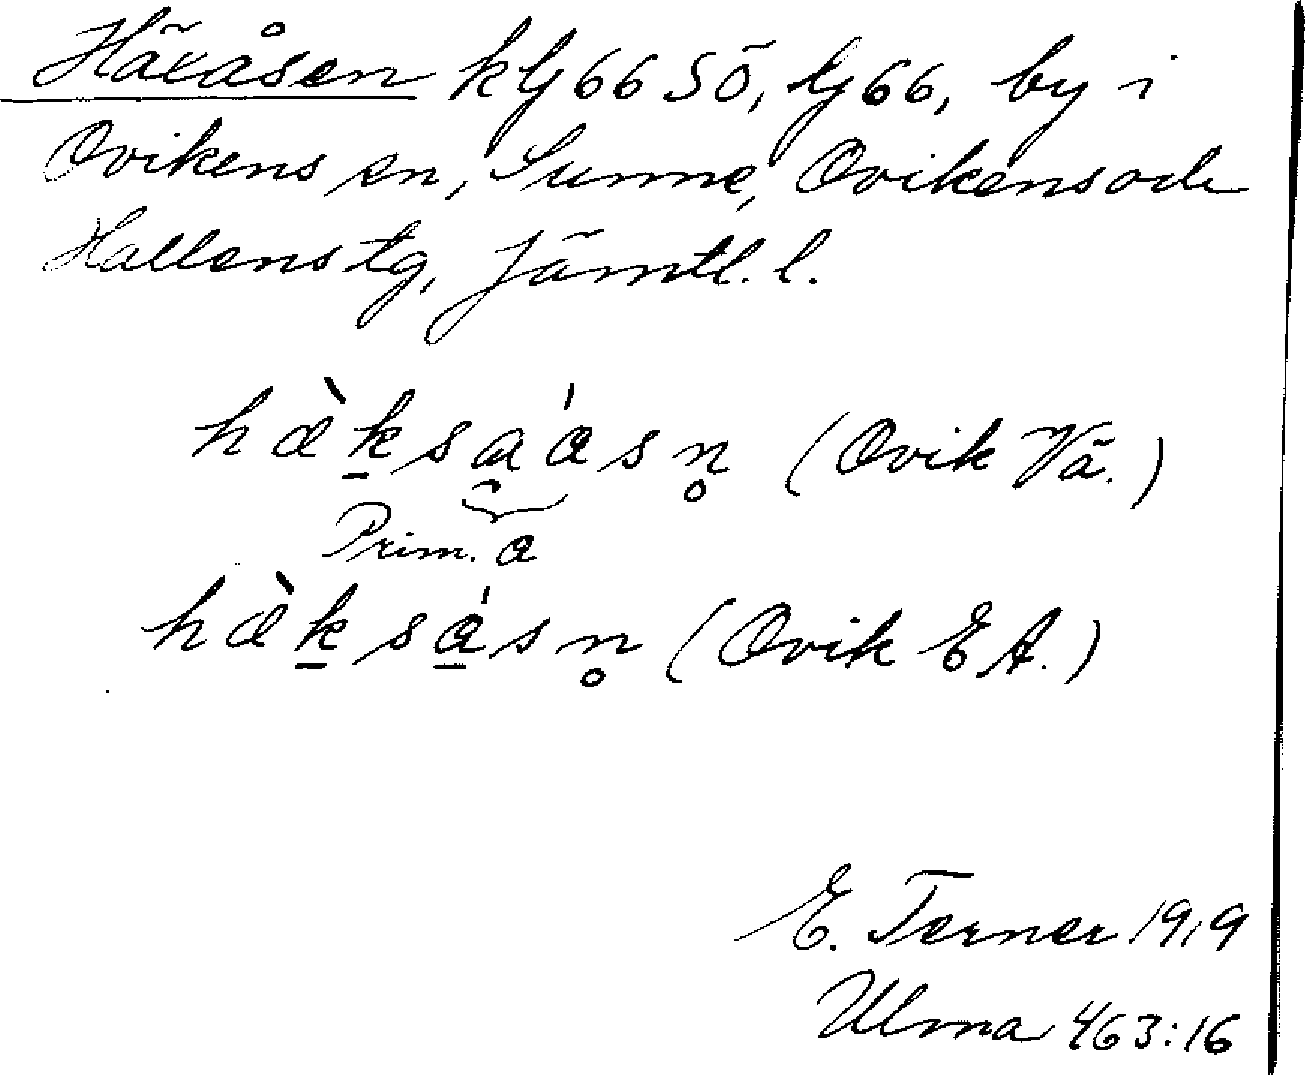 Häxåsen klj 66 SÖ, lj 66, by i
Ovikens sn, Sunne, Ovikens och
Hallens tg, Jämtl. l.
hæ̀k̠sa̰ásn̥ (Ovik Vä.)
Prim. a
hæ̀k̠sá̠sn̥ (Ovik EA.)
E. Terner 1919
Ulma 463:16